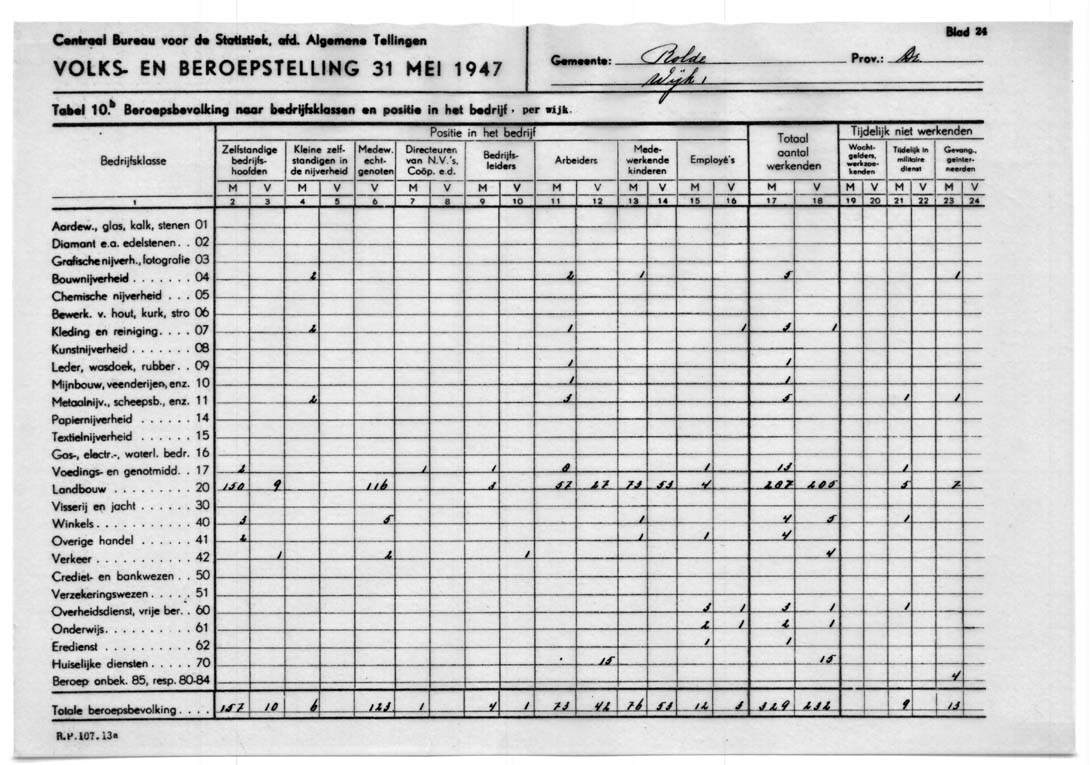 Centraal Bureau voor de Statistiek, afd. Algemene Tellingen
VOLKS- EN BEROEPSTELLING 31 MEI 1947
Gemeente: Rolde
Wijk 1
Prov.: Dr.
Blad 24
Tabel 10.b Beroepsbevolking naar bedrijfsklassen en positie in het bedrijf, per wijk.
Bedrijfsklasse | Positie in het bedrijf | Totaal aantal werkenden | Tijdelijk niet werkenden
Zelfstandige bedrijfshoofden | Kleine zelfstandigen in de nijverheid | Medew. echtgenoten | Directeuren van N.V.'s, Coöp. e.d. | Bedrijfsleiders | Arbeiders | Medewerkende kinderen | Employé's | Wachtgelders, werkzoekenden | Tijdelijk in militaire dienst | Gevang., geïnterneerden
M V M V V M V M V M V M V M V M V M V M V M V
1 2 3 4 5 6 7 8 9 10 11 12 13 14 15 16 17 18 19 20 21 22 23 24
Aardew., glas, kalk, stenen 01
Diamant e.a. edelstenen . . 02
Grafische nijverh., fotografie 03
Bouwnijverheid . . . . . . . 04 2 2 1 5 1
Chemische nijverheid . . . 05
Bewerk. v. hout, kurk, stro 06
Kleding en reiniging . . . . 07 2 1 1 3 1
Kunstnijverheid . . . . . . . 08
Leder, wasdoek, rubber . . 09 1 1
Mijnbouw, veenderijen, enz. 10 1 1
Metaalnijv., scheepsb., enz. 11 2 3 5 1 1
Papiernijverheid . . . . . . 14
Textielnijverheid . . . . . . 15
Gas-, electr.-, waterl. bedr. 16
Voedings- en genotmidd. . 17 2 1 1 8 1 13 1
Landbouw . . . . . . . . . 20 150 9 116 3 57 27 73 53 4 287 205 5 7
Visserij en jacht . . . . . . 30
Winkels . . . . . . . . . . . 40 3 5 1 4 5 1
Overige handel . . . . . . 41 2 1 1 4
Verkeer . . . . . . . . . . . 42 1 2 1 4
Crediet- en bankwezen . . 50
Verzekeringswezen . . . . . 51
Overheidsdienst, vrije ber. . 60 3 1 3 1 1
Onderwijs . . . . . . . . . . 61 2 1 2 1
Eredienst . . . . . . . . . . 62 1 1
Huiselijke diensten . . . . . 70 15 15
Beroep onbek. 85, resp. 80-84 4
Totale beroepsbevolking . . . . 157 10 6 123 1 4 1 73 42 76 53 12 3 329 232 9 13
R.P.107.13a